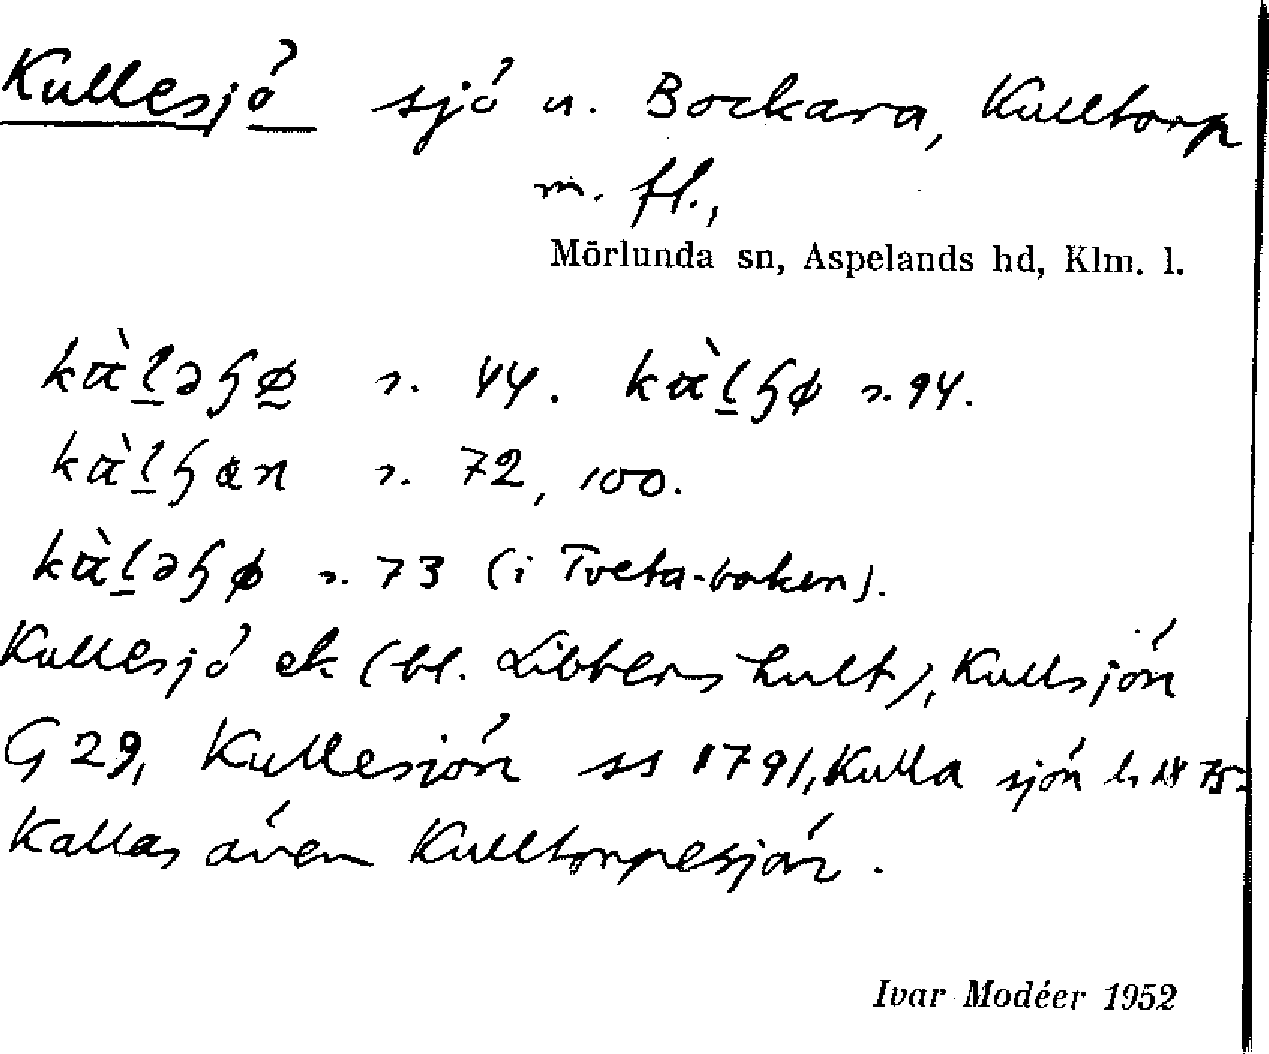 Kullesjö sjö u. Bockara, Kulltorp
m. fl.,
Mörlunda sn, Aspelands hd, Klm. l.
s. 44. s. 94.
s. 72, 100.
s. 73 (i Tveta-boken).
Kullesjö ek (bl. Libbershult), Kullsjön
G 29, Kullesjön ss 1791, Kulla sjön h 1875.
Kallas även Kulltorpesjön.
Ivar Modéer 1952